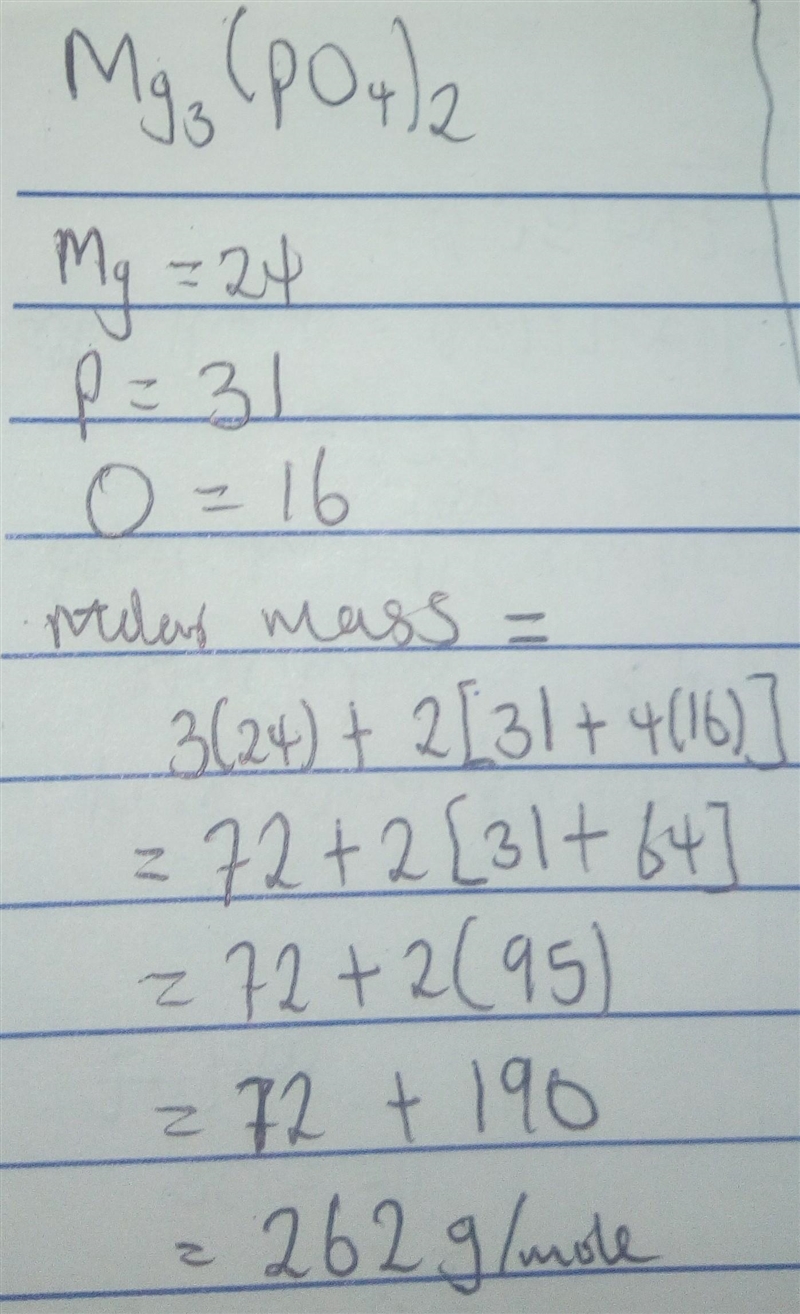 Mg₃(PO₄)₂
Mg = 24
P = 31
O = 16
molar mass =
3(24) + 2[31 + 4(16)]
= 72 + 2[31 + 64]
= 72 + 2(95)
= 72 + 190
= 262 g/mole